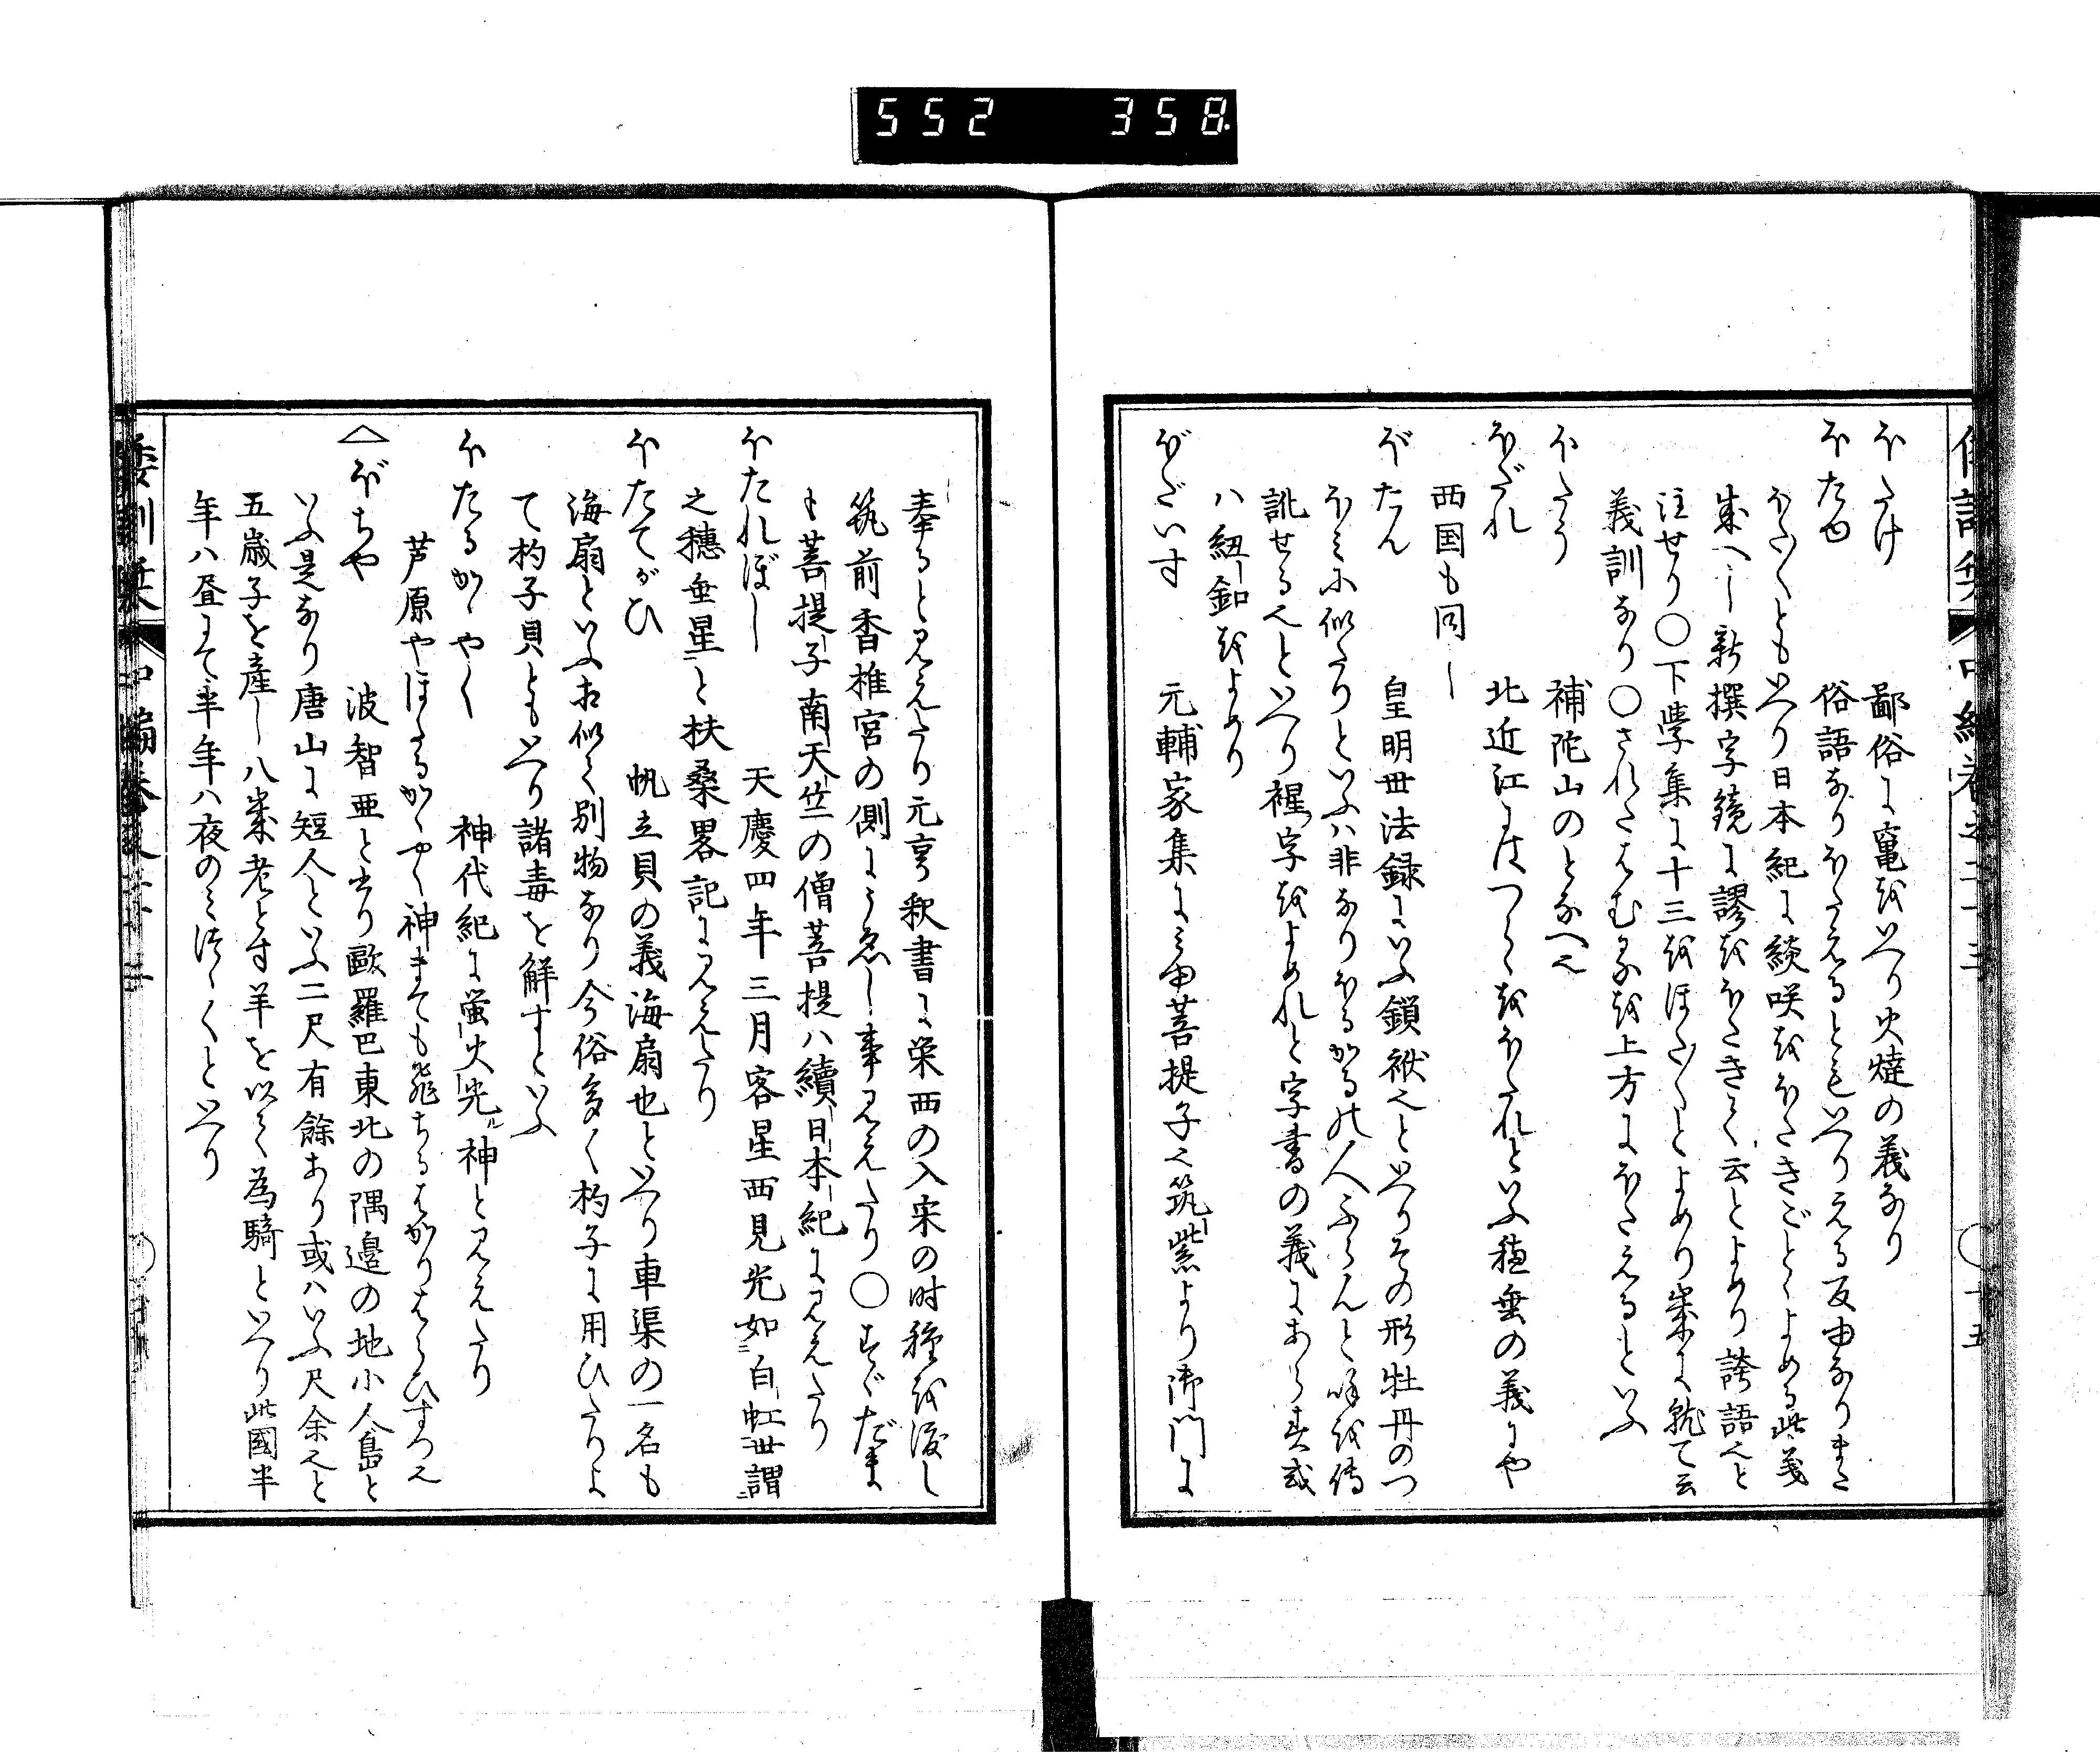 552 358
ほたけ 鄙俗に竈をいへり火焼の義なり
ほたゆ 俗語なりほたえるともいへりえる反ゆなりまた
ほたくともいへり日本紀に談咲をほたきごとゝよめる此義
成へし新撰字鏡に謬をほたきてく云とよめり誇語也と
注せり○下学集に十三をほたくとよめり案に就て云
義訓なり○されたはむるを上方にほたえるといふ
ほたう 補陀山のとなへ也
ほだれ 北近江にはつらゝをほたれといふ穂垂の義にや
西国も同し
ぼたん 皇明世法録にいふ鎖袱也といへりその形牡丹のつ
ほみに似たりといふハ非なりほるかるの人ふらんと
訛せる也といへり䙝字をよめれと字書の義にあらす或
ハ紐釦をよめり
ぼだいす 元輔家集にみゆ菩提子也筑紫より御門に
奉ると見えたり元亨釈書に栄西の入宋の时種を渡し
筑前香椎宮の側にうゑし事見えたり○すゞだま
も菩提子南天竺の僧菩提ハ續日本紀に見えたり
ほたれぼし 天慶四年三月客星西見光如白虹世謂
之穗垂星と扶桑畧記に見えたり
ほたてがひ 帆立貝の義海扇也といへり車渠の一名も
海扇といふ相似て別物なり今俗多く杓子に用ひたりよ
て杓子貝ともいへり諸毒を解すといふ
ほたるかゝやく 神代紀に蛍火光神と見えたり
芦原やほたるかゝやく神まても
△ぼちや 波智亜と書り歐羅巴東北の隅邉の地小人島と
いふ是なり唐山に短人といふ二尺有餘あり或ハいふ尺余也と
五歳子を産し八歳老とす羊を以て為騎といへり此國半
年ハ昼にて半年ハ夜のみつゝくといへり
倭訓栞 中編巻之二十三